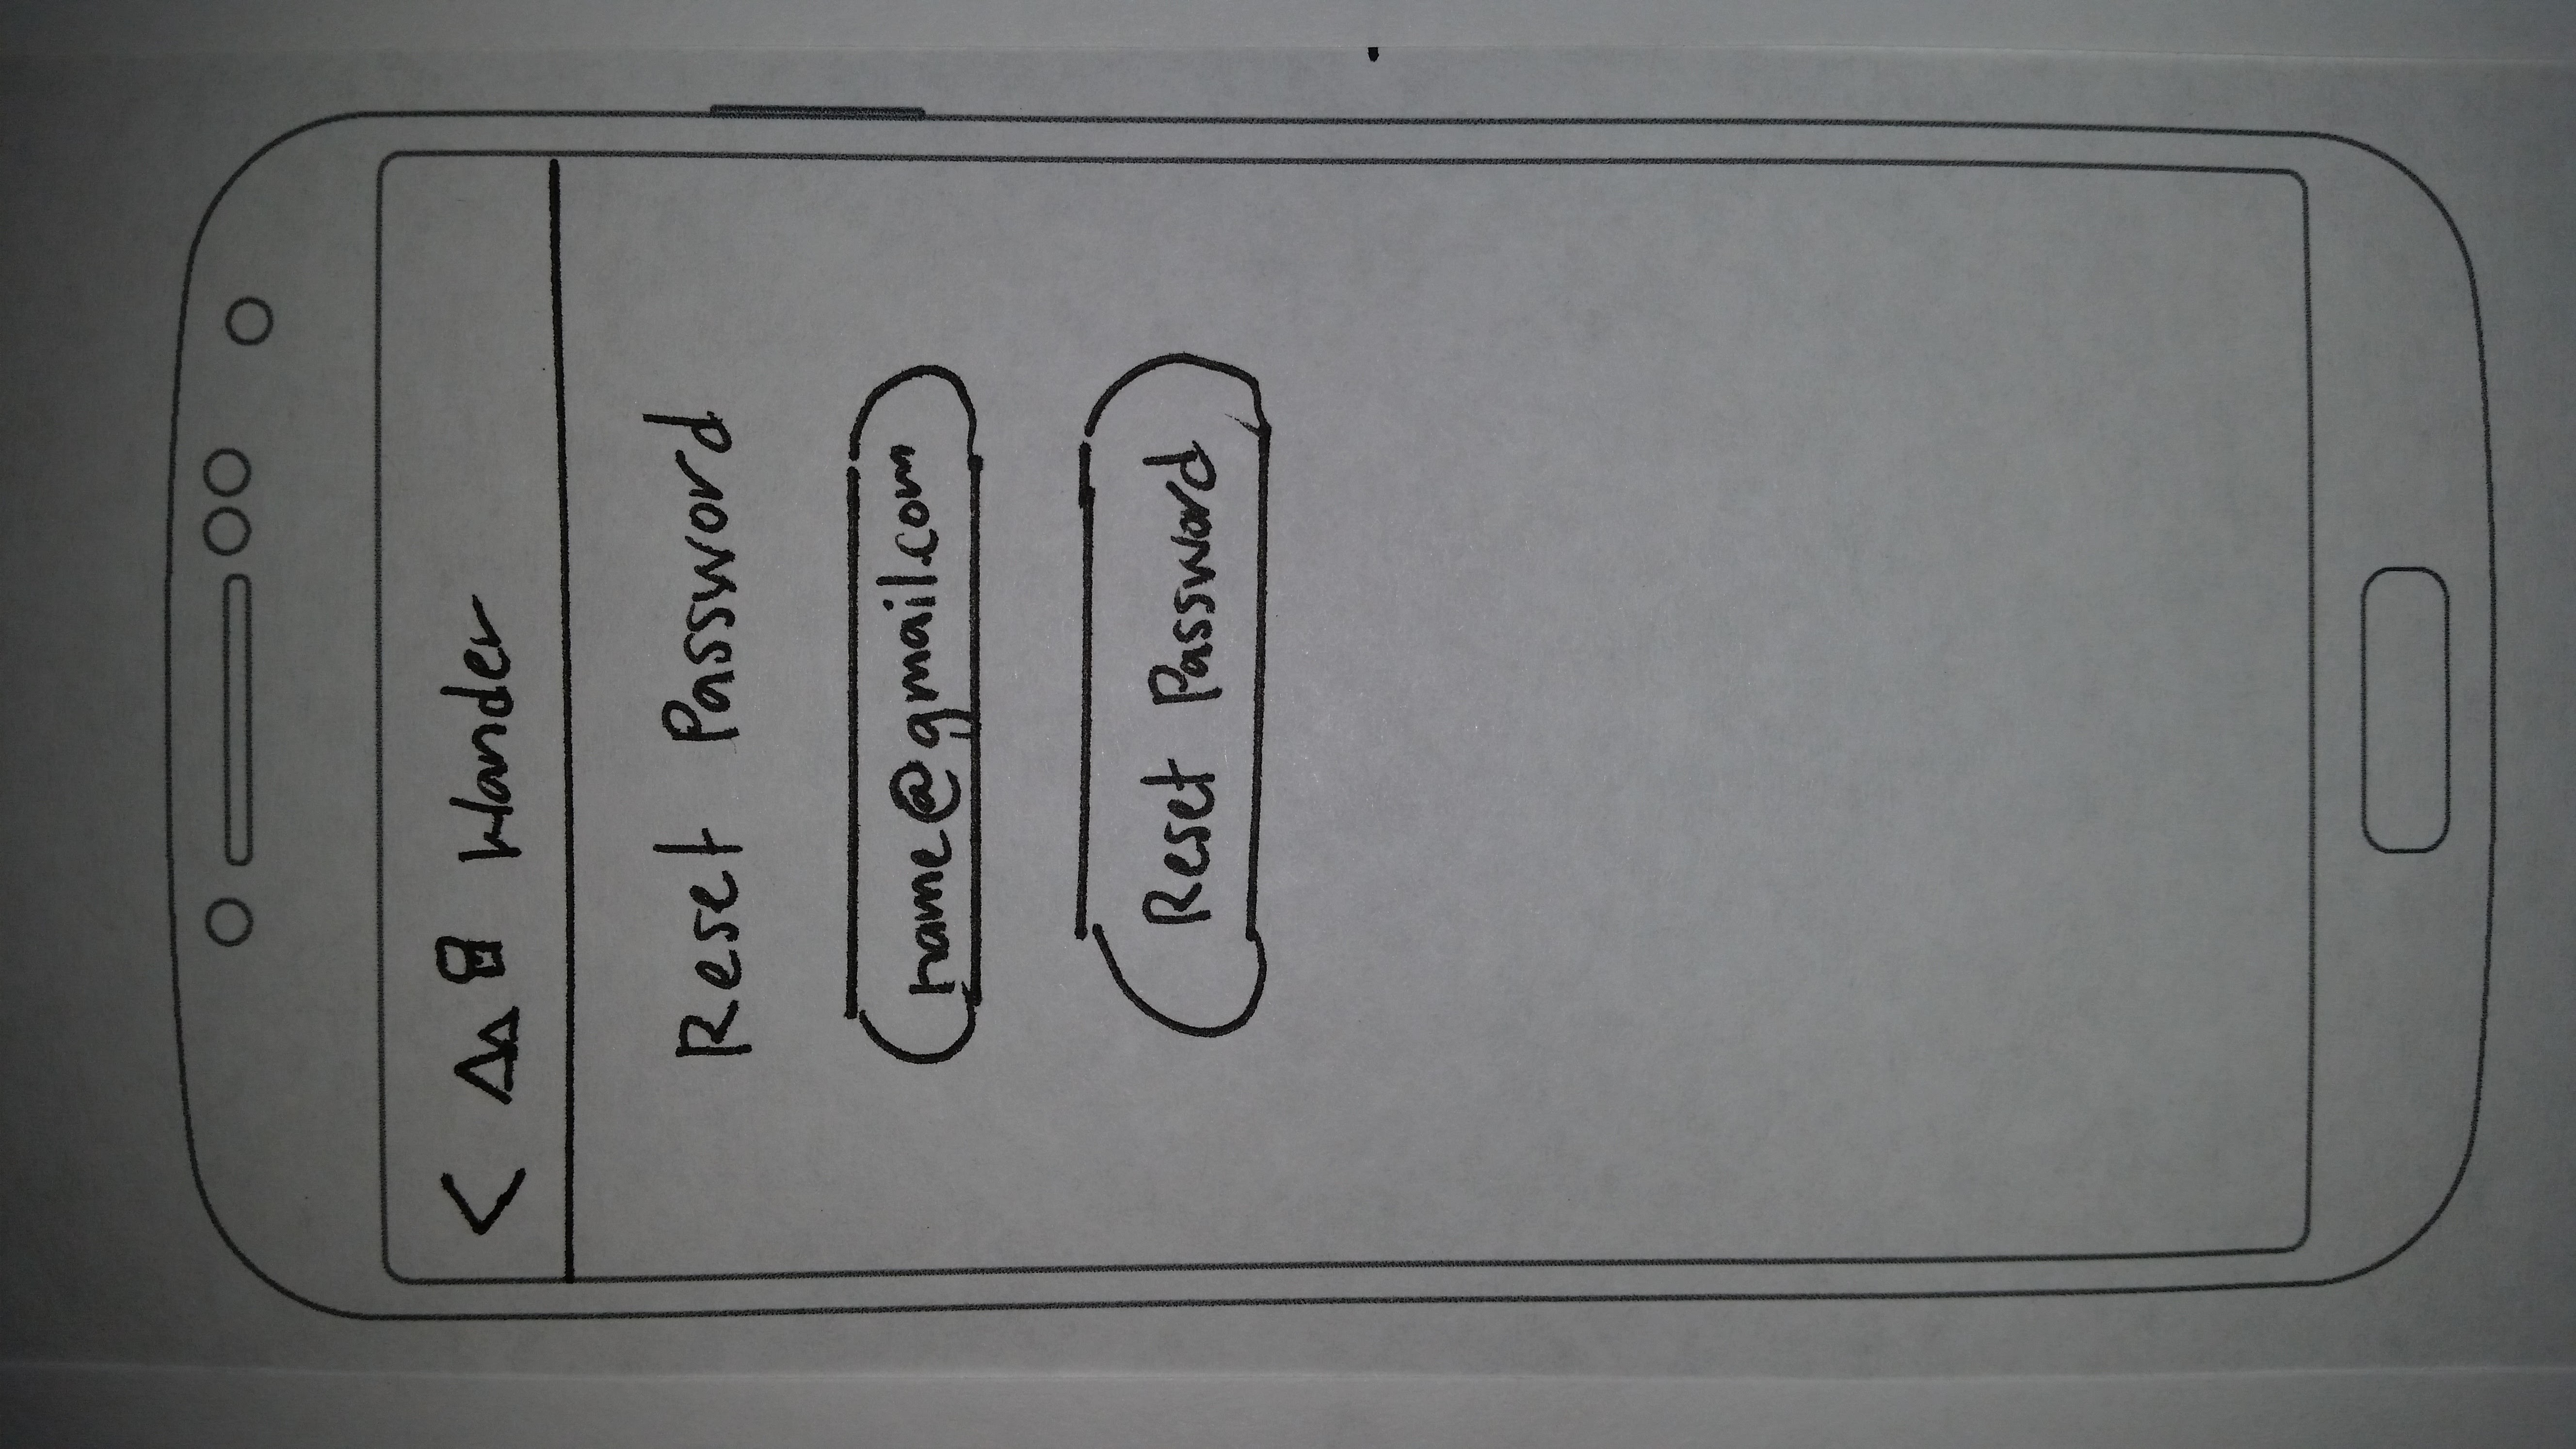 < Wander
Reset Password
name@gmail.com
Reset Password